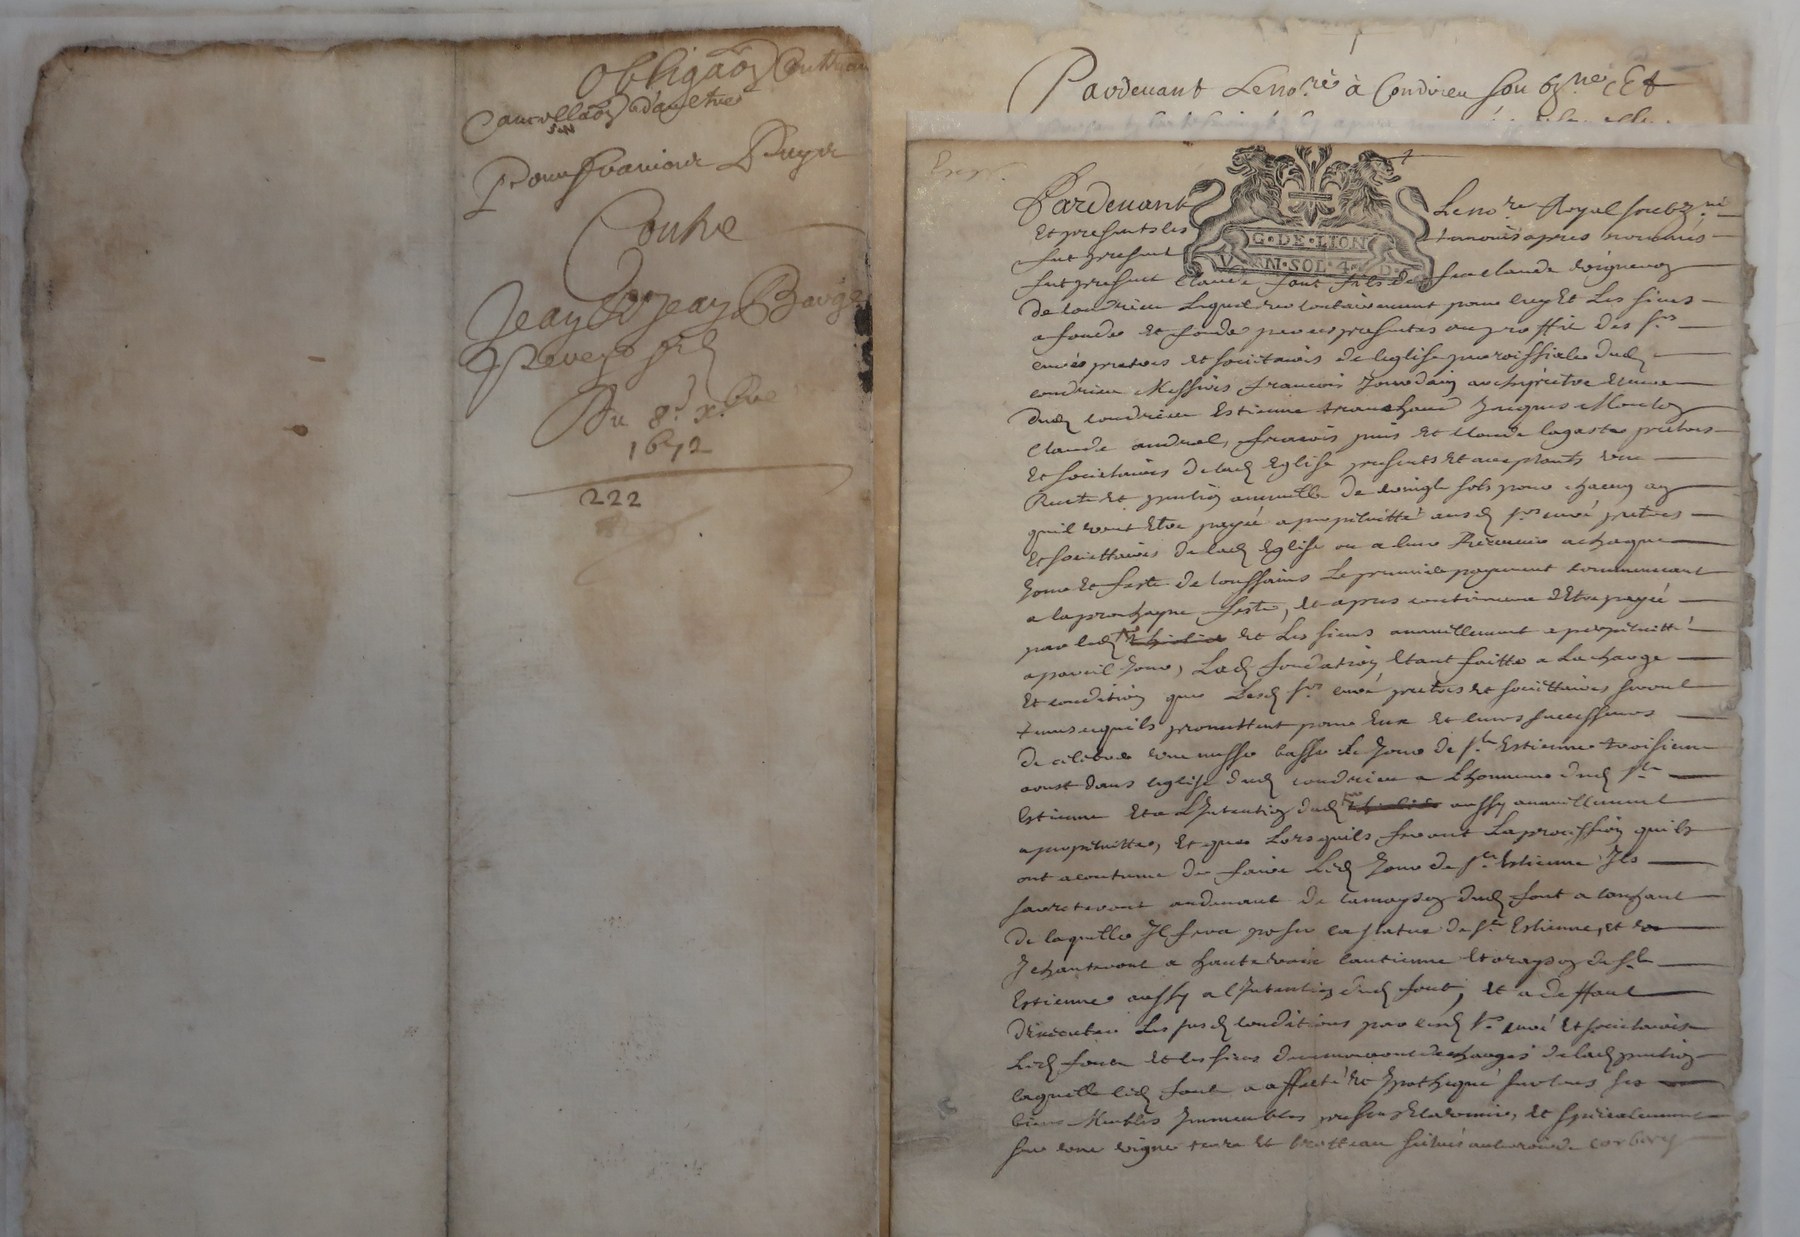 Obligaõn
Cancellaõn d'autre
Pour francois
Contre
Jean Et Jean
Du 8.e x.bre
1672
222
Pardevant Leno.re à Condrieu soubz.né Et
Pardevant Leno.re Royal soubz.né
Et presents les temoins apres nommés
fut present
G·DE·LION
SOL·4·D·
fut present Claude font fils de feu Claude vigneron
de Condrieu Lequel volontairement pour luy Et Les siens
a fondé et fonde par ces presentes au proffit des s.rs
curé pretres et societaires de leglise parroissialle dud
condrieu Messires francois Jourdain archiprêtre Et curé
dud Condrieu Estienne tranchand Jacques
Claude andral, francois puis et Claude lagasta pretres
Et societaires de lad Eglise presents et acceptants une
Rente et pention annuelle de vingt sols pour chacun an
quil veut Etre payée a perpétuitté ausd s.rs curé pretres
Et Societtaires de lad Eglise ou a leur Receveur a chaque
Jour Et feste de toussaint Le premier payement commencant
a la prochayne feste, et apres continuer d'Etre payée
par led et Les siens annuellement a perpétuitté
a pareil Jour, Lad fondation Etant faitte a La charge
Et condition que Lesd s.rs curé pretres et societtaires seront
tenus quils promettent pour Eux et leurs successeurs
de célébrer une messe basse le Jour de s.t Estienne troisieme
aoust dans leglise dud condrieu a Lhonneur dud s.t
Estienne Et a L'Intention dud aussy annuellement
a perpetuitté, Et que Lorsquils feront La procession quils
ont acoutumé de faire Led Jour de s.t Estienne Ils
sarreteront audevant de la mayson dud font a
de laquelle Il fera poser la statue de s.t Estienne, et
J chanteront a haute voix l'antienne Et orayson de s.t
Estienne aussy a l'Intention dud font, et a deffaut
d'executer Les susd conditions par lesd s.rs curé Et societaires
Led font et les siens demeureront dechargés de lad pention
laquelle led font a affecté et Jpothequé sur tous ses
biens Meubles Immeubles presens Et advenir, et specialement
sur une vigne terre Et brotteau situés au terroir de corbery